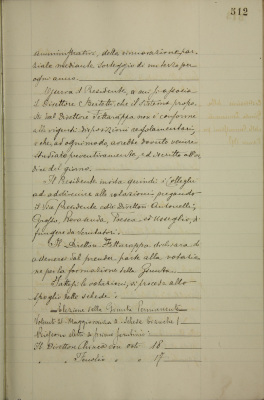 512
amministrativi, della rinnovazione par-
ziale mediante sorteggio di un terzo per
ogni anno.
Osserva il Presidente, a cui si associa
il Direttore Bertetti che il sistema propo-
sto dal Direttore Fettarappa non è conforme
alle vigenti disposizioni regolamentari,
che ad ogni modo, avrebbe dovuto venire
studiato preventivamente, ed iscritto all'or-
dine del giorno.
Il Presidente invita quindi i colleghi
ad addivenire alla votazione pregando
il Vice Presidente ed i Direttori Antonelli,
di
fungere da Scrutatori.
Il Direttore Fettarappa dichiara di
astenersi dal prender parte alla votazio-
ne per la formazione della Giunta.
Fattesi le votazioni, si procede allo
spoglio delle schede.
Elezione della Giunta Permanente
Votanti 21 - Maggioranza 11 - Schede bianche 1
Riescono eletti a primo scrutinio:
Il Direttore con voti 18
" " " " 17